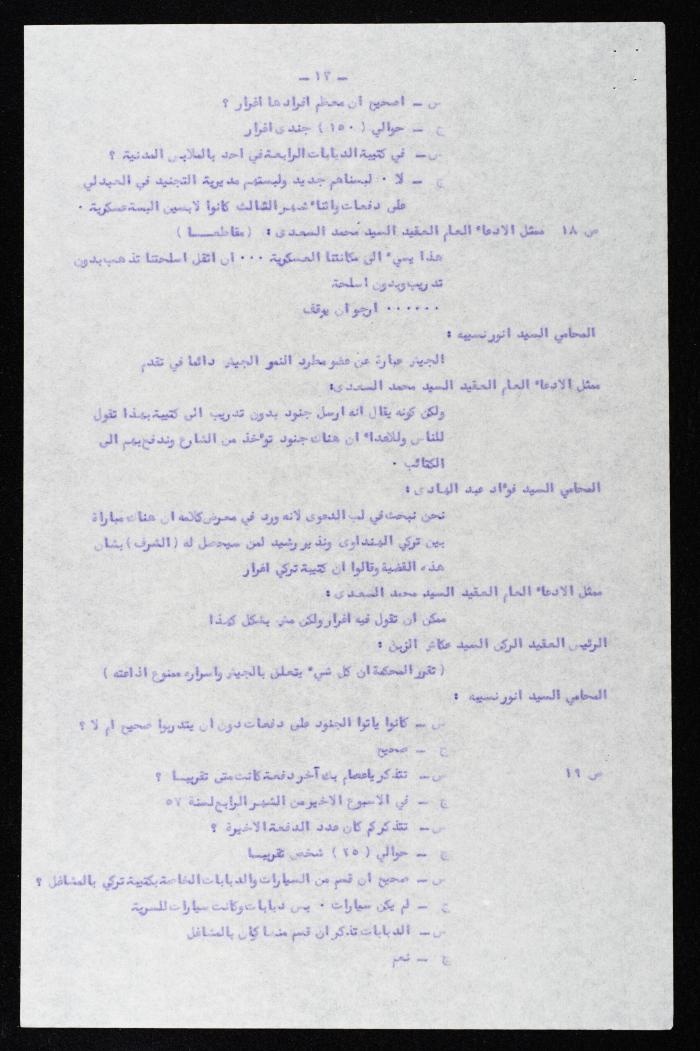 - ١٢ -
س - اصحيح ان معظم افرادها اغرار ؟
ج - حوالي ( ١٥٠ ) جندى اغرار
س - في كتيبة الدبابات الرابعة في احد بالملابس المدنية ؟
ج - لا ٠ لبسناهم جديد ولبستهم مديرية التجنيد في العبدلي
على دفعات واثناء شهر الثالث كانوا لابسين البسة عسكرية ٠
ص ١٨ ممثل الادعاء العام العقيد السيد محمد السعدى : ( مقاطعـــا )
هذا يسيء الى مكانتنا العسكرية ٠٠٠ ان اثقل اسلحتنا تذهب بدون
تدريب وبدون اسلحة
٠٠٠٠٠٠ ارجو ان يوقف
المحامي السيد انور نسيبه :
الجيش عبارة عن عضو مطرد النمو الجيش دائما في تقدم
ممثل الادعاء العام العقيد السيد محمد السعدى :
ولكن كونه يقال انه ارسل جنود بدون تدريب الى كتيبة بهذا تقول
للناس وللاعداء ان هناك جنود تؤخذ من الشارع وندفع بهم الى
الكتائب ٠
المحامي السيد فؤاد عبد الهادى :
نحن نبحث في لب الدعوى لانه ورد في معرض كلامه ان هناك مباراة
بين تركي الهنداوى ونذير رشيد لمن سيحصل له ( الشرف ) بشان
هذه القضية وقالوا ان كتيبة تركي اغرار
ممثل الادعاء العام العقيد السيد محمد السعدى :
ممكن ان تقول فيه اغرار ولكن مش بشكل كهذا
الرئيس العقيد الركن السيد عكاش الزبن :
( تقرر المحكمة ان كل شيء يتعلق بالجيش واسراره ممنوع اذاعته )
المحامي السيد انور نسيبه :
س - كانوا ياتوا الجنود على دفعات دون ان يتدربوا صحيح ام لا ؟
ج - صحيح
ص ١٩ س - تتذكر ياعصام بك آخر دفعة كانت متى تقريبـــا ؟
ج - في الاسبوع الاخير من الشهر الرابع لسنة ٥٧
س - تتذكر كم كان عدد الدفعة الاخيرة ؟
ج - حوالي ( ٢٥ ) شخص تقريبــا
س - صحيح ان قسم من السيارات والدبابات الخاصة بكتيبة تركي بالمشاغل ؟
ج - لم يكن سيارات ٠ بس دبابات وكانت سيارات للسرية
س - الدبابات تذكر ان قسم منها كان بالمشاغل
ج - نعم